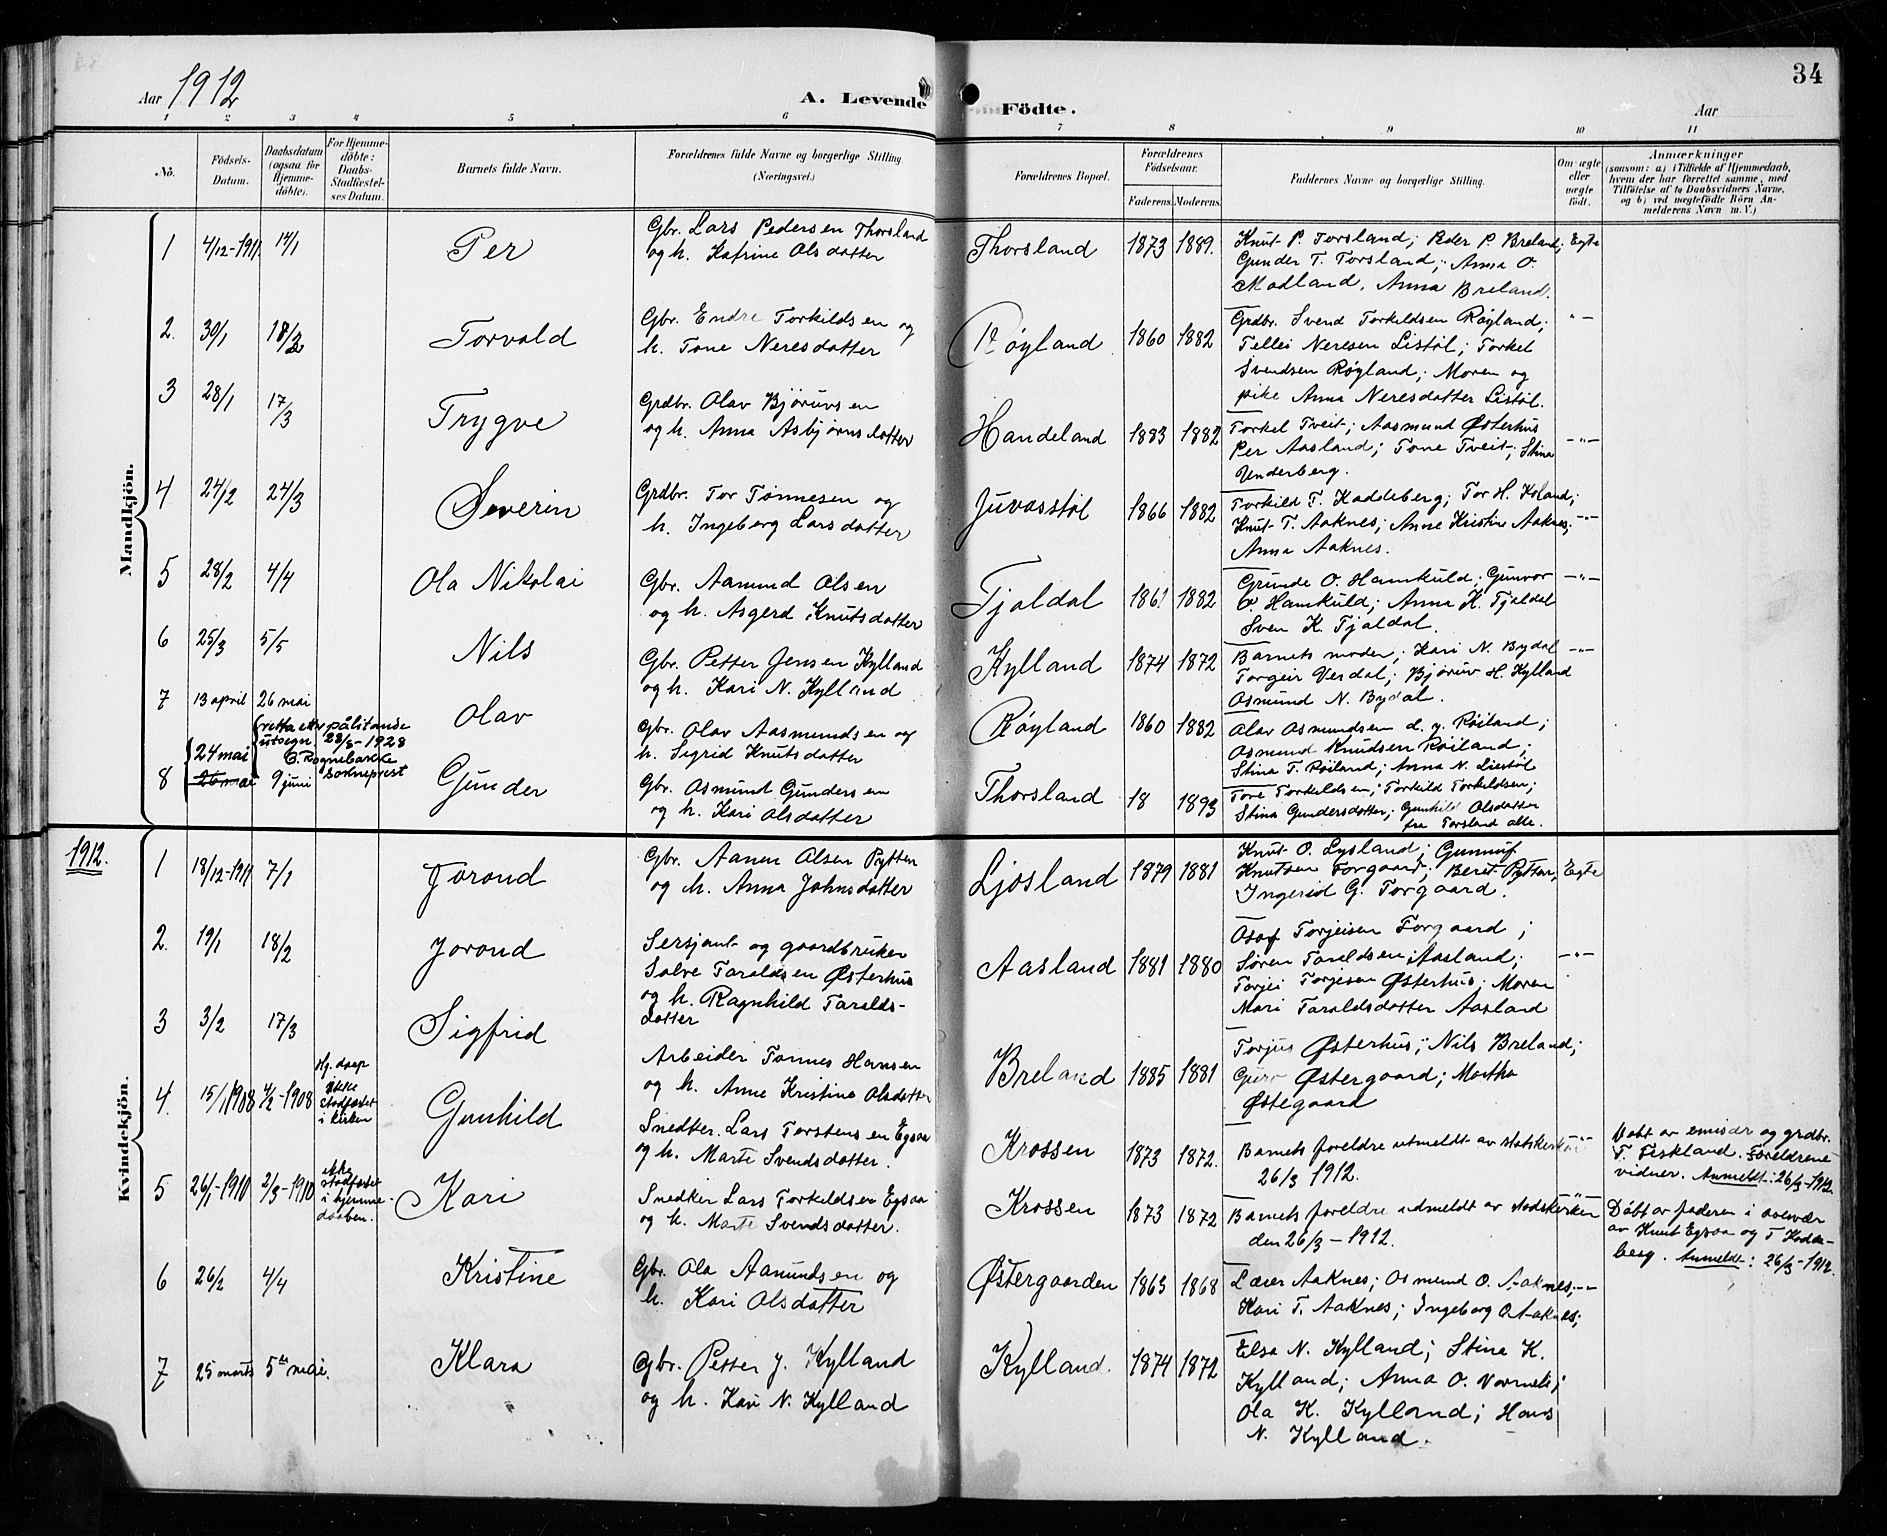 Aar 1912
A. Levende Födte.
Aar
34
1 2 3 4 5 6 7 8 9 10 11
No.
Födsels-Datum.
Daabsdatum (ogsaa for Hjemmedöbte).
For Hjemmedöbte: Daabs-Stadfæstelses Datum.
Barnets fulde Navn.
Forældrenes fulde Navne og borgerlige Stilling (Næringsvei.)
Forældrenes Bopæl.
Forældrenes Födselsaar.
Faderens. Moderens.
Faddernes Navne og borgerlige Stilling.
Om ægte eller uægte födt.
Anmærkninger
(saasom: a) i Tilfælde af Hjemmedaab,
hvem der har forrettet samme, med
Tilföielse af to Daabsvidners Navne.
og b) ved uægtefödte Börn An-
melderens Navn m. V.)
Mandkjön.
1 4/12-1911. 14/1 Per
Gbr. Lars Pedersen Thorsland
og h. Katrine Olsdatter
Thorsland 1873 1889.
Knut P. Torsland; Peder P. Breland; Egte
Gunder T. Torsland; Anna O.
Modland, Anna Breland.
2. 30/1 18/2 Torvald
Gbr. Endre Torkildsen og
h. Tone Neresdatter
Röyland 1860 1882
Grdbr. Svend Torkildsen Röyland; -"-
Tellei Neresen Listöl; Torkel
Svendsen Röyland; Moren og
pike Anna Neresdatter Listöl.
3 28/1 17/3 Trygve
Grdbr. Olav Björuvsen
og h. Anna Asbjörnsdatter
Handeland 1883 1882
Torkel Tveit; Aasmund Østerhus
Per Aasland; Tone Tveit; Stina -"-
Underberg.
4 24/2 24/3 Severin
Grdbr. Tor Tönnesen og
h. Ingeberg Larsdatter
Juvasstöl 1866 1882
Torkild T. Haddeberg; Tor H. Koland;
Knut T. Aaknes; Anne Kristine Aaknes; -"-
Anna Aaknes.
5 28/2 4/4 Ola Nikolai
Gbr. Aamund Olsen
og h. Asgerd Knutsdatter
Fjaldal 1861 1882
Grunde O. Hamkuld; Gunvor -"-
O. Hamkuld; Anna K. Fjaldal
Sven K. Fjaldal.
6 25/3 5/5 Nils
Gbr. Petter Jensen Kylland
og h. Kari N. Kylland
Kylland 1874 1872
Barnets moder; Kari N. Bydal -"-
Torgeir Verdal; Björuv H. Kylland
Osmund N. Bydal.
7 13 april 26 mai Olav
Gbr. Olav Aasmundsen og
h. Sigrid Knutsdatter
Röyland 1860 1882
Olav Osmundsen d. y. Röiland;
Osmund Knudsen Röiland;
Stina T. Röiland; Anna N. Liestöl
(retta etter pålitande
utsegn. 28/8-1928
B. Rognebakke
sokneprest
8 24 mai 26 mai 9 juni Gunder
Gbr. Osmund Gundersen
og h. Kari Olsdatter
Thorsland 18 1893
Tone Torkildsen; Torkild Torkildsen;
Stina Gundersdatter; Gunhild Olsdatter
fra Torsland alle.
1912.
Kvindekjön.
1 18/12-1911 7/1 Jorond
Gbr. Aanen Olsen Pytten
og h. Anna Johnsdatter
Ljosland 1879 1881
Knut O. Lysland; Gunnuf
Knutsen Forgaard; Beret Pytten; Egte
Ingerid G. Forgaard.
2. 19/1 18/2 Jorond
Sersjant og gaardbruker
Salve Taraldsen Østerhus
og h. Ragnhild Taralds-
datter
Aasland 1881 1880
Osof Torjeisen Forgaard;
Sören Taraldsen Aasland; -"-
Torjei Torjeisen Østerhus; Moren
Mari Taraldsdatter Aasland
3 3/2 17/3 Sigfrid
Arbeider Tönnes Hansen
og h. Anne Kristine Olsdatter
Breland 1885 1881
Torjus Østerhus; Nils Breland;
Guro Østergaard; Martha
Østegaard
4. 15/1 1908 4/2-1908
Hj. daap
ikke
stadfæstet
i kirken
Gunhild
Snedker. Lars Torstensen Egsaa
og h. Marte Svendsdatter.
Krossen 1873 1872.
Barnets foreldre utmeldt av statskirken
26/3 1912.
Döbt av emisær og grdbr.
T. Fiskland. Foreldrene
vidner. Anmeldt: 26/3-1912.
5 26/1-1910 2/3-1910
ikke
stadfæstet
i hjemme-
daaben.
Kari
Snedker Lars Torkildsen Egsaa
og h. Marte Svendsdatter.
Krossen 1873 1872
Barnets foreldre udmeldt av statskirken
den 26/3-1912.
Döbt av faderen i overvær
av Knut Egsaa og T Hadde-
berg. Anmeldt: 26/3-1912.
6 26/2 4/4 Kristine
Gbr. Ola Aanundsen og
h. Kari Olsdatter
Østergaarden 1863 1868
Lærer Aaknes; Osmund O. Aaknes; -"-
Kari T. Aaknes; Ingeborg O Aaknes;
7 25 marts 5te mai. Klara
Gbr. Petter J. Kylland
og h. Kari N. Kylland
Kylland. 1874 1872
Elsa N. Kylland; Stina K.
Kylland; Anna O. Vormeli;
Ola K. Kylland; Hans
N. Kylland.